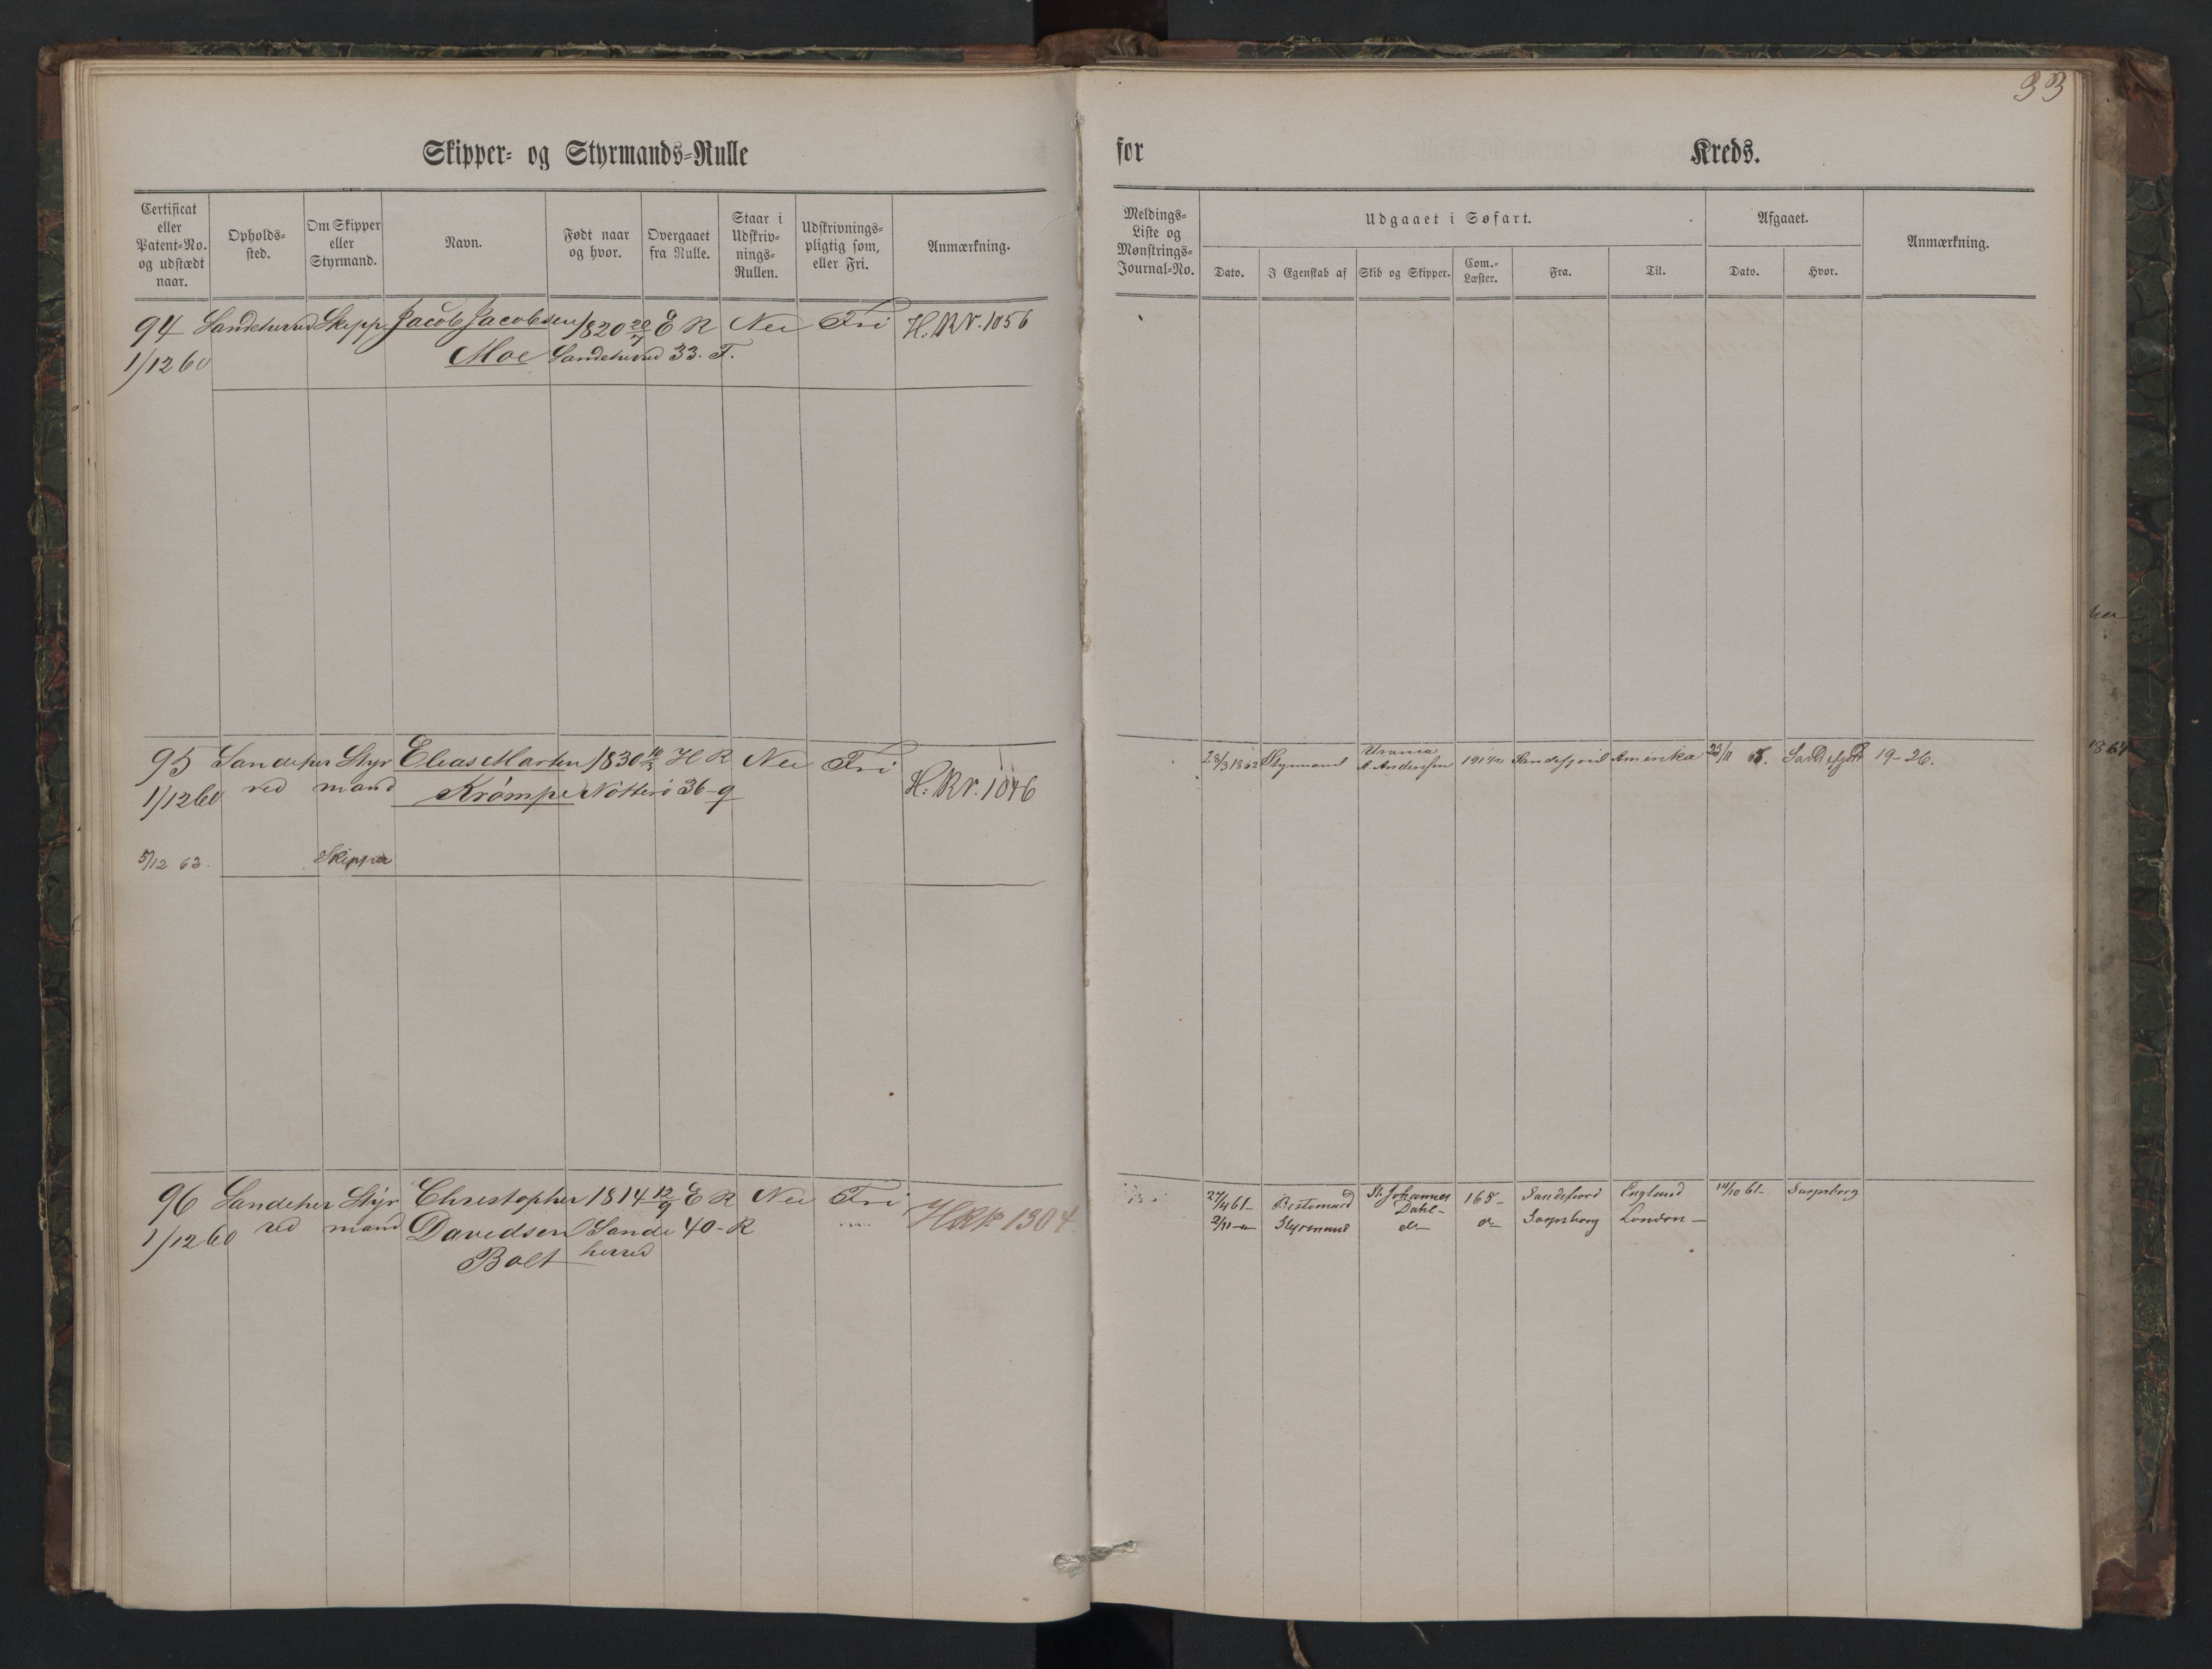 33
Skipper- og Styrmands-Rulle
for Kreds.
Certificat eller Patent-No. og udstædt naar.
Opholds-sted.
Om Skipper eller Styrmand.
Navn.
Født naar og hvor.
Overgaaet fra Rulle.
Staar i Udskriv-nings-Rullen.
Udskrivnings-pligtig som, eller Fri.
Anmærkning.
Meldings-Liste og Mønstrings-Journal-No.
Udgaaet i Søfart.
Dato.
I Egenskab af
Skib og Skipper.
Com.-Læster.
Fra.
Til.
Afgaaet.
Dato.
Hvor.
Anmærkning.
94 Sandeherred Skipp Jacob Jacobsen 1820 20/7 E R Nei Fri H. R N. 1056
1/12 60 Moe Sandeherred 33. F.
95 Sandeher Styr Elias Martin 1830 H R Nei Fri
1/12 60 red mand Krømpe Nötterö 36-9 H: R N. 1046
5/12 63. Skipper
28/3 1862 Styrmand Urania A. Andersen Sandefjord Amerika 23/11 Sandefjord 19-26.
96 Sandeher Styr Christopher 1814 12/9 E R Nei Fri
1/12 60 red mand Davidsen Sande 40-R 1304
Bolt herred
27/4 61- Bestemand St. Johannes Dahl- 168- Sandefiord England 14/10 61- Sarpsborg
2/11 - Styrmand do do Sarpsborg London -
1864